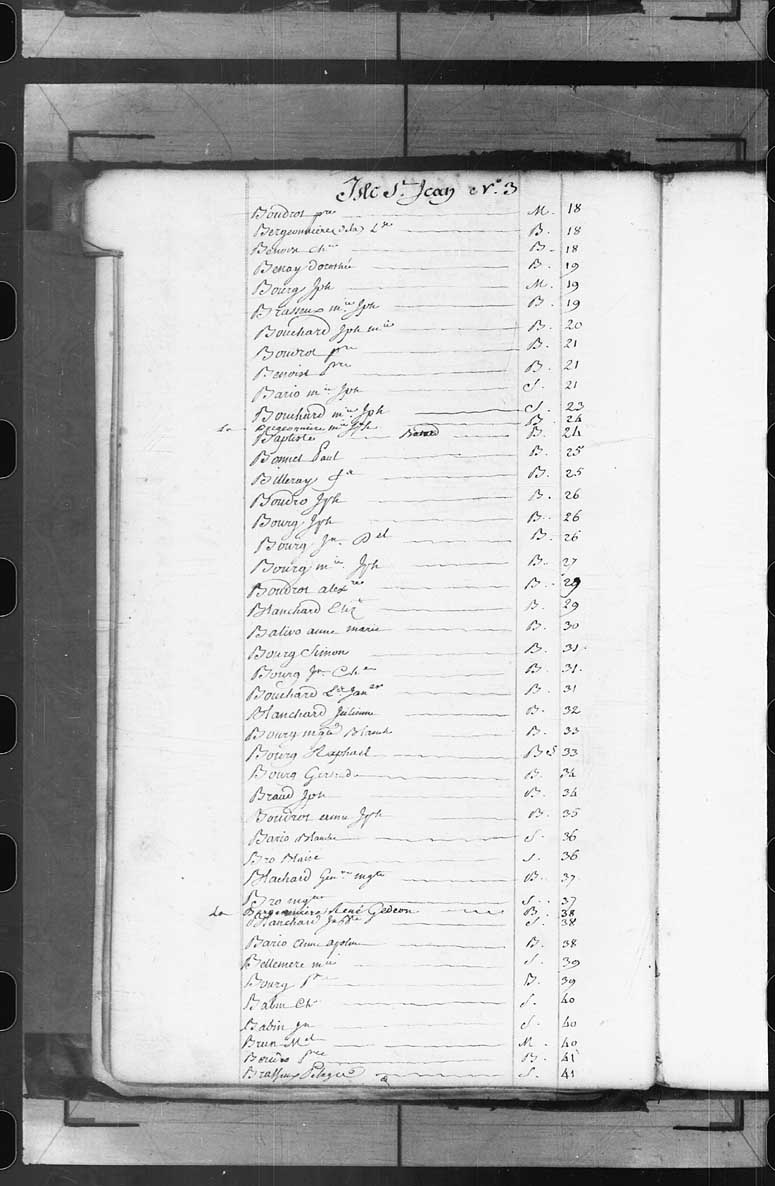 Isle St Jean No. 3
Boudrot pre M. 18
Bergeonniere (de la) Lse B. 18
B. 18
Benay dorothée B. 19
Bourg Jph M. 19
Brasseux mie Jph B. 19
Bouchard Jph mie B. 20
Boudrot pre B. 21
Benoist pre B. 21
Bario mie Jph S. 21
Bouchard mie Jph S. 23
La Bergeonniere mie Jph B. 24
Baptiste B. 24
Bonnet Paul B. 25
Billeray B. 25
Boudro Jph B. 26
Bourg Jph B. 26
Bourg Jn. B. 26
Bourg mie Jph B. 27
Boudrot alexre B. 29
Blanchard Elizt B. 29
Balivo anne marie B. 30
Bourg Simon B. 31.
Bourg Jn. Ch B. 31.
Bouchard Ls B. 31
Blanchard Julienne B. 32
Bourg mgte Blanche B. 33
Bourg Raphael B S 33
Bourg Gertrude B. 34
Braud Jph B. 34
Boudrot anne Jph B. 35
Bario Blanche S. 36
Bro Blaise S. 36
Blachard Genve mgte B. 37
Bro mgte S. 37
La Bergeonniere René Gedeon B. 38
Blanchard S. 38
Bario Anne apoline B. 38
Bellemere mie S. 39
Bourg Pre B. 39
Babin Ch S. 40
Babin jn S. 40
Brun Mel M. 40
pre B. 41
Brasseux Pelagie S. 41